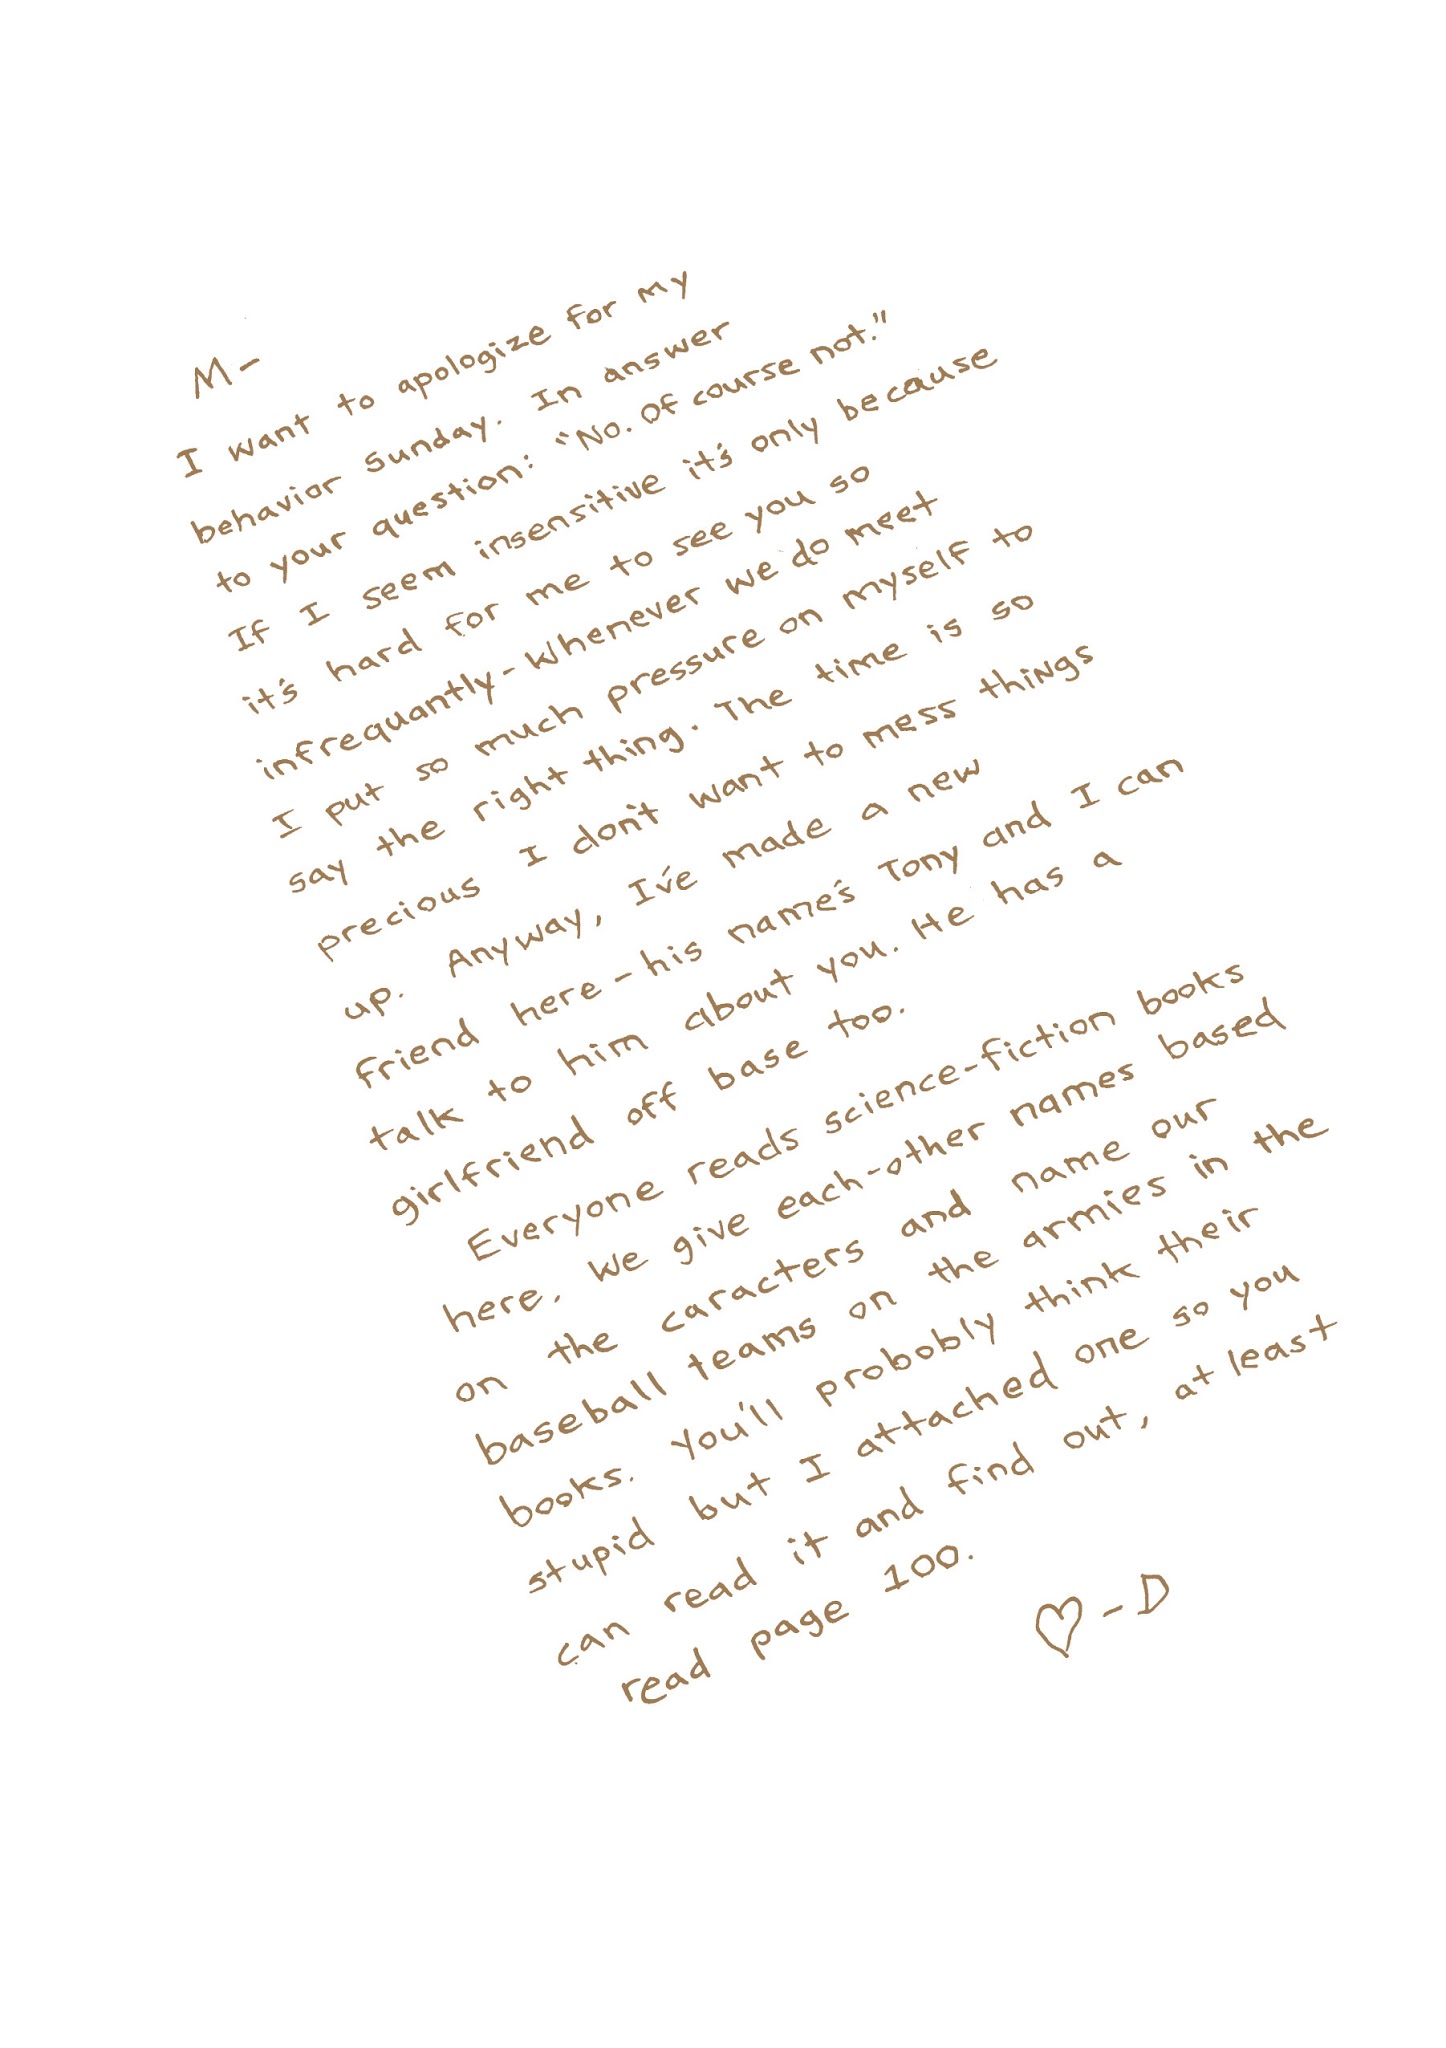 M-
I want to apologize for my
behavior Sunday. In answer
to your question: "No. Of course not."
If I seem insensitive it's only because
it's hard for me to see you so
infrequantly - Whenever we do meet
I put so much pressure on myself to
say the right thing. The time is so
precious I don't want to mess things
up. Anyway, I've made a new
friend here - his name's Tony and I can
talk to him about you. He has a
girlfriend off base too.
Everyone reads science-fiction books
here. We give each-other names based
on the caracters and name our
baseball teams on the armies in the
books. You'll probobly think their
stupid but I attached one so you
can read it and find out, at least
read page 100.
♡-D